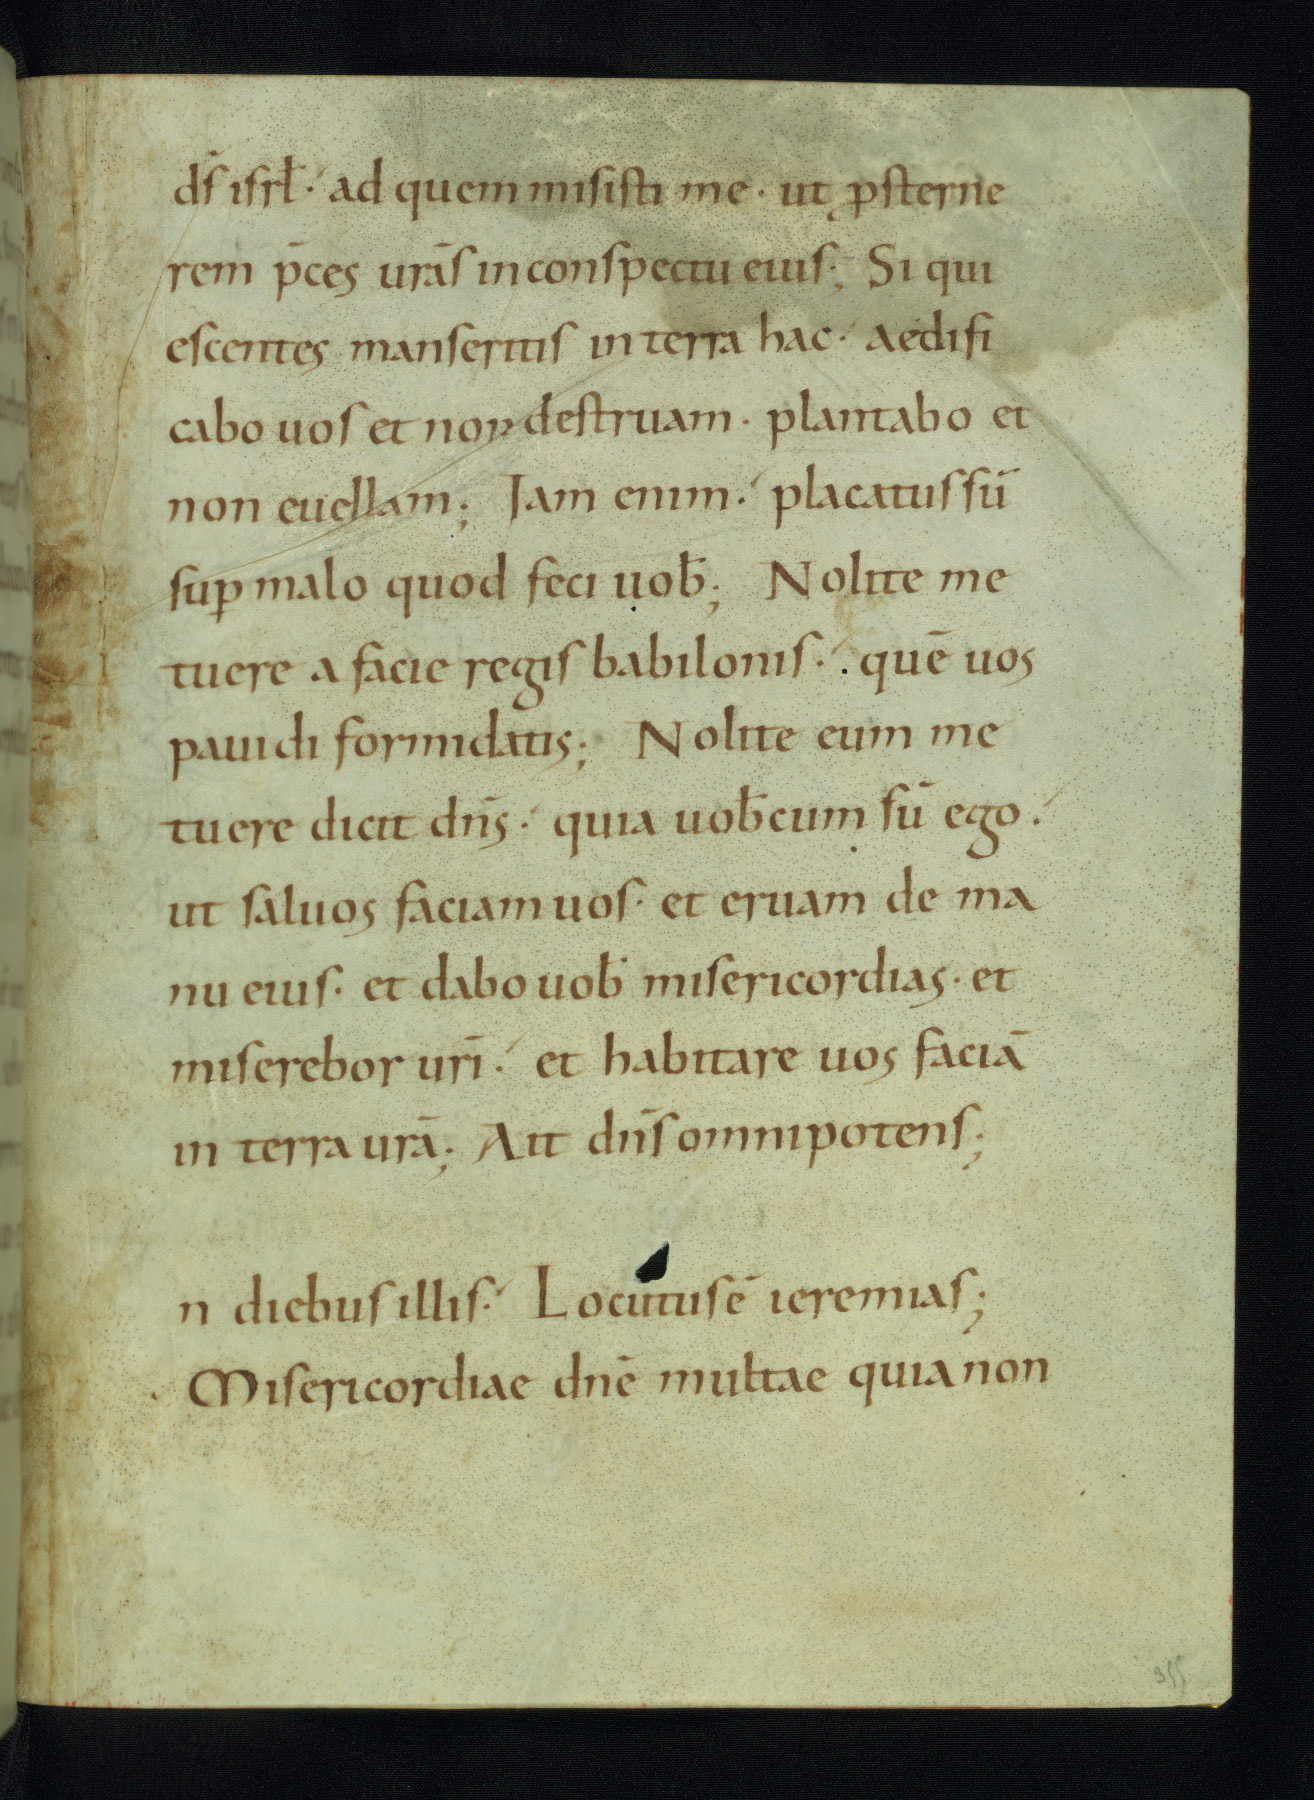 dſ̄ iſrl̄· ad quem miſiſti me· ut ꝓſterne
rem p̄ces urāſ in conſpectu eiuſ; Si qui
eſcentes manſeritiſ in terra hac· aedifi
cabo uoſ et non deſtruam· plantabo et
non euellam; Iam enim· placatuſ ſū
ſuꝑ malo quod feci uob̄; Nolite me
tuere a facie regiſ babiloniſ· quē uos
pauidi formidatis; Nolite eum me
tuere dicit dn̄s· quia uob̄cum ſū ego·
ut ſaluos faciam uoſ· et eruam de ma
nu eiuſ· et dabo uob̄ miſericordias· et
miſerebor urī· et habitare uos faciā
in terra urā; Ait dn̄ſ omnipotenſ;
n diebuſ illiſ· Locutuſ ē ieremiaſ;
Miſericordiae dn̄ē multae quia non
355